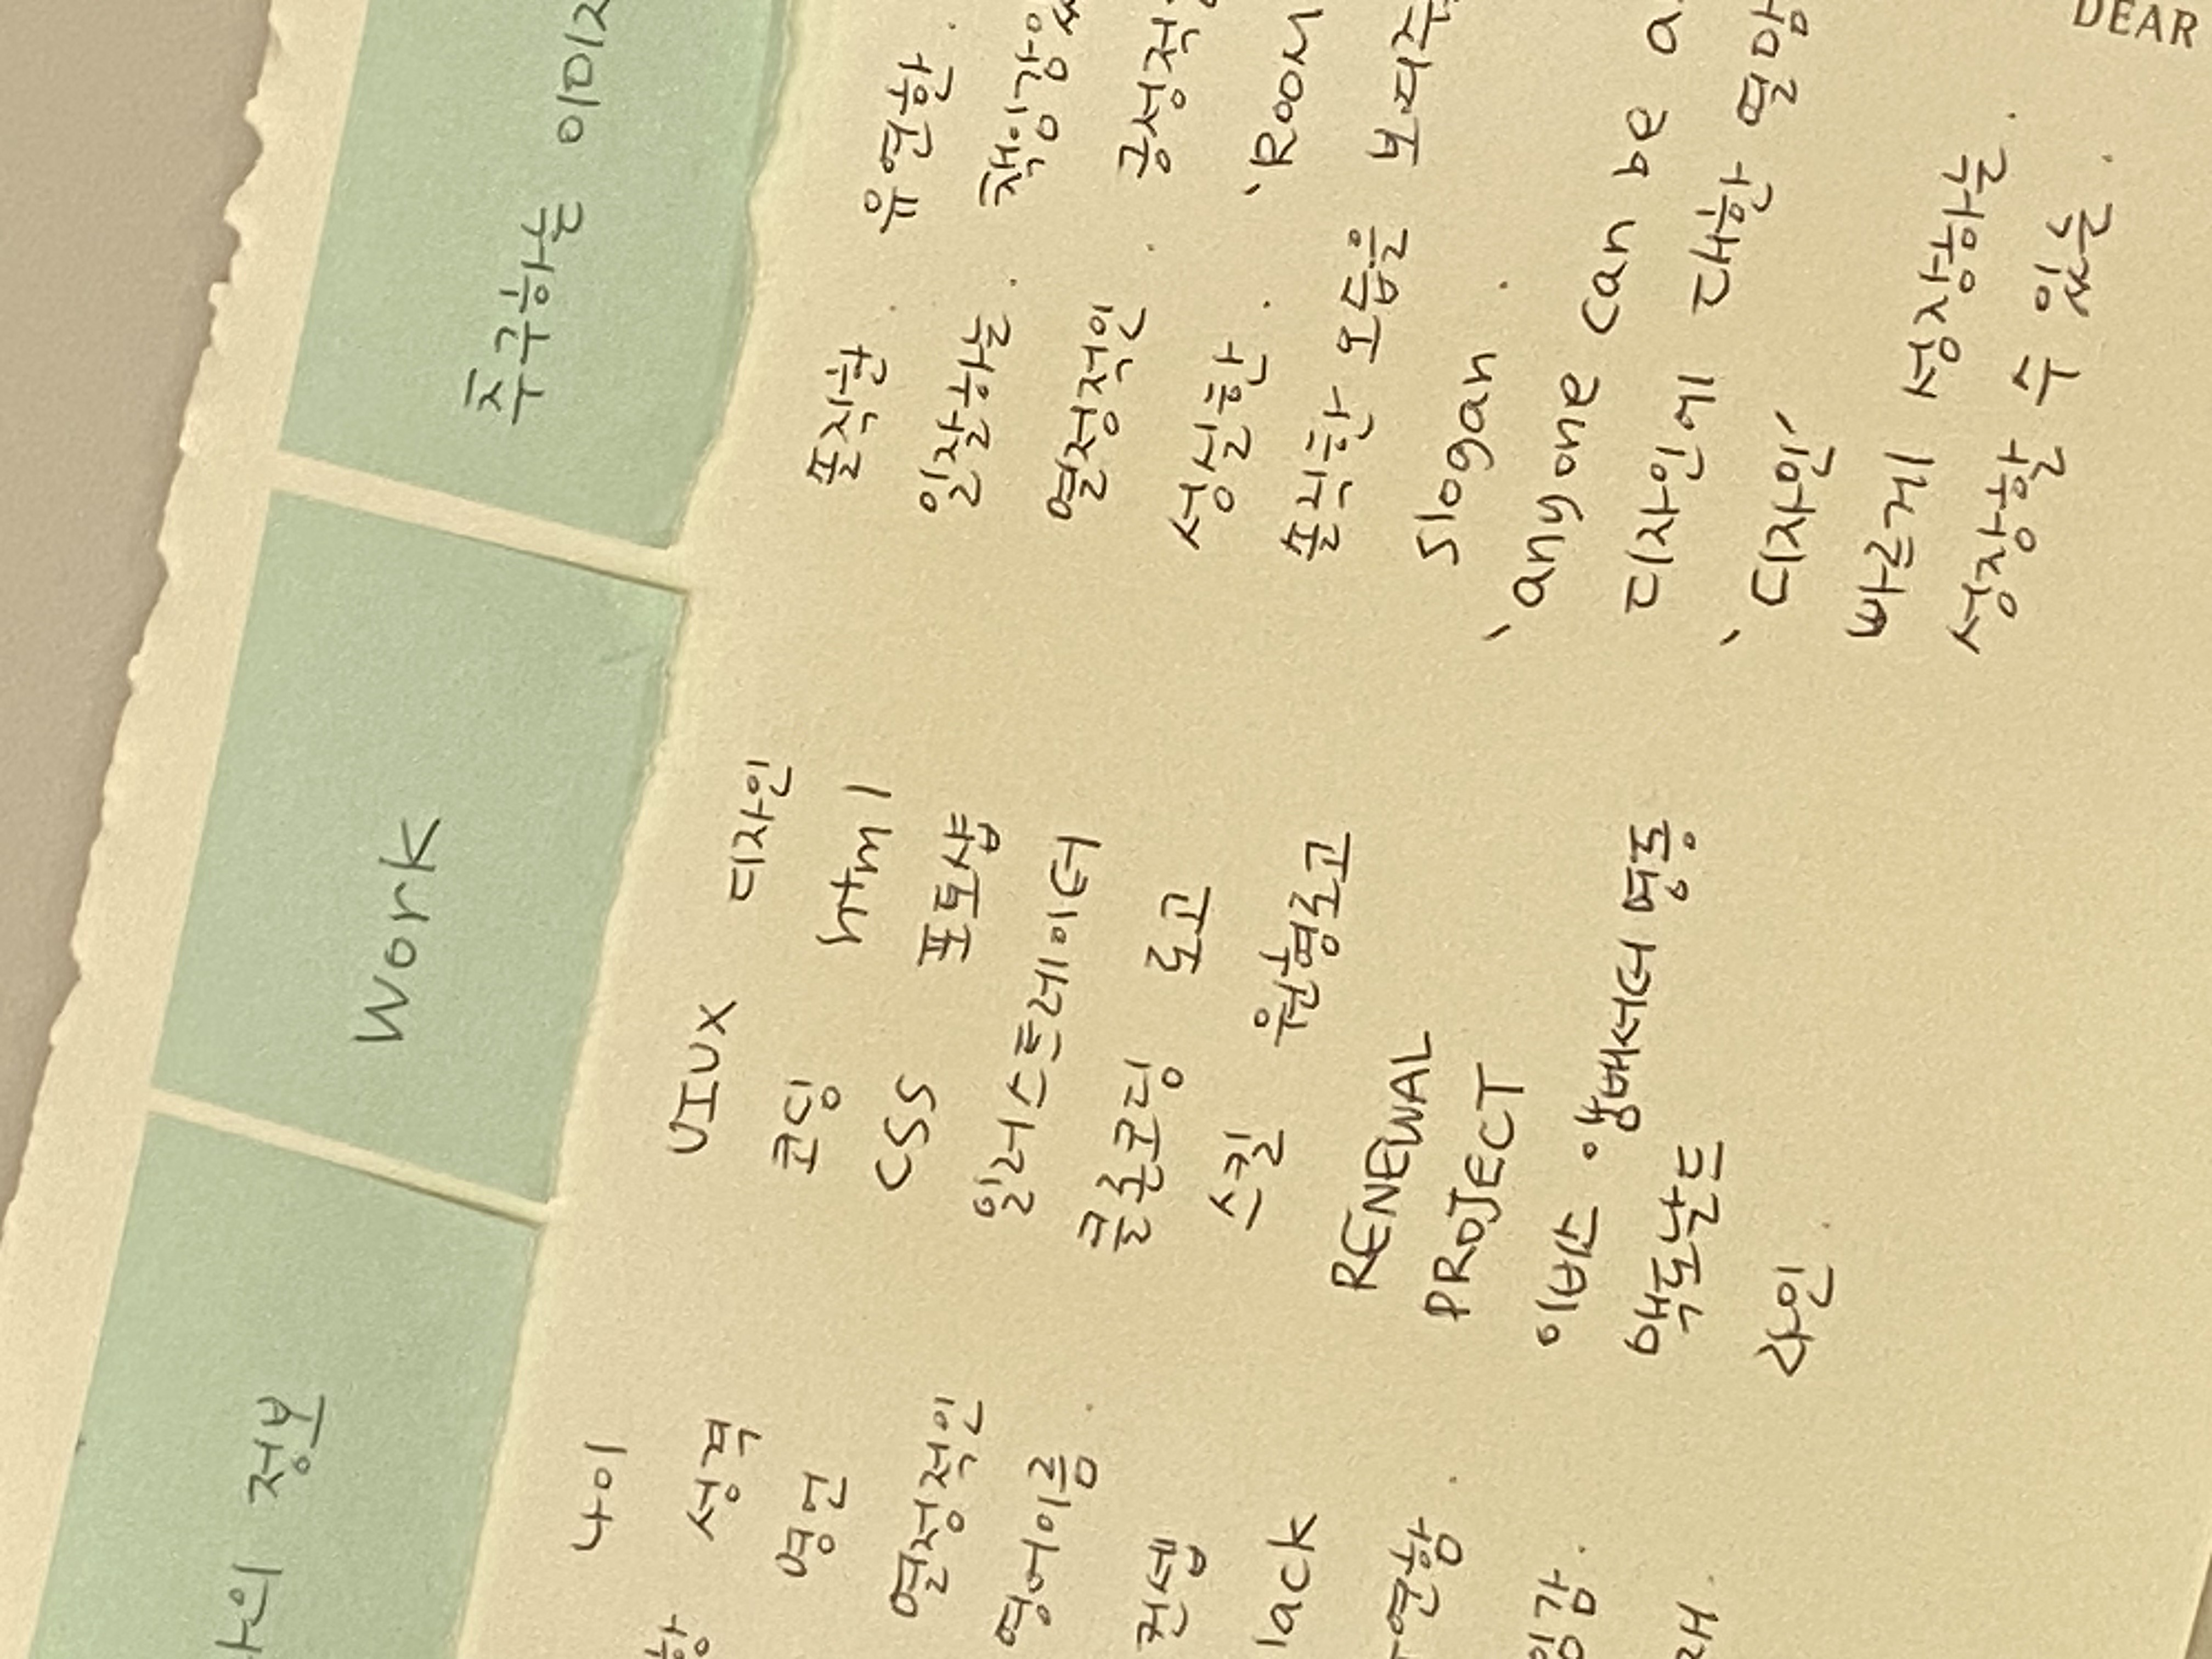 나의 정보
나이
성격
명언
열정적인
영어이름.
컨셉
lack
유연함.
임감.
재.
Work
UIUX 디자인
코딩 html
CSS 포토샵
일러스트레이터
클론코딩 로고
스킬 원형로고
RENEWAL
PROJECT
이비스 앰배서더 명동
맥도날드
라인.
추구하는 이미지
솔직한. 유연한.
일잘하는. 책임감있
열정적인. 긍정적인
성실한. 'ROOM
솔직한 모습을 보여주
slogan.
'anyone can be a
디자인에 대한 열망
'디자인'
빠르게 성장하는.
성장할 수 있는.
DEAR